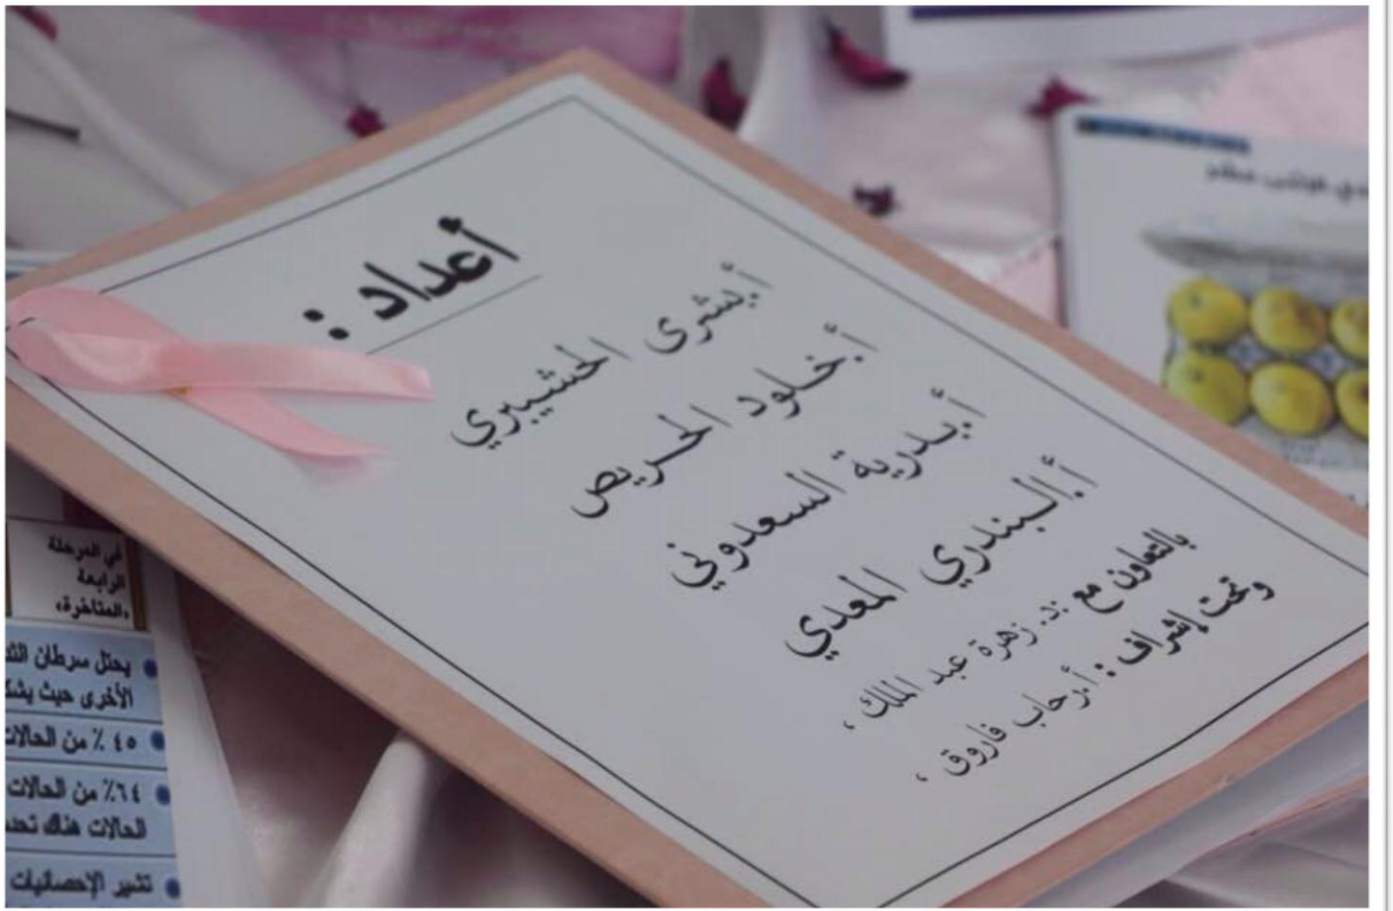 أعداد :
أ.بشرى الحشيبري
أ.خلود الحريص
أ.بدرية السعدوني
أ.البندري المعدي
بالتعاون مع :د. زهرة عبد الملك ،
وتحت إشراف : أ.رحاب فاروق ،
في المرحلة
الرابعة
«المتاخرة»
يحتل سرطان
الأخرى حيث
٤٥ ٪ من الحالات
٦٤٪ من الحالات
الحالات هناك
تشير الإحصائيات